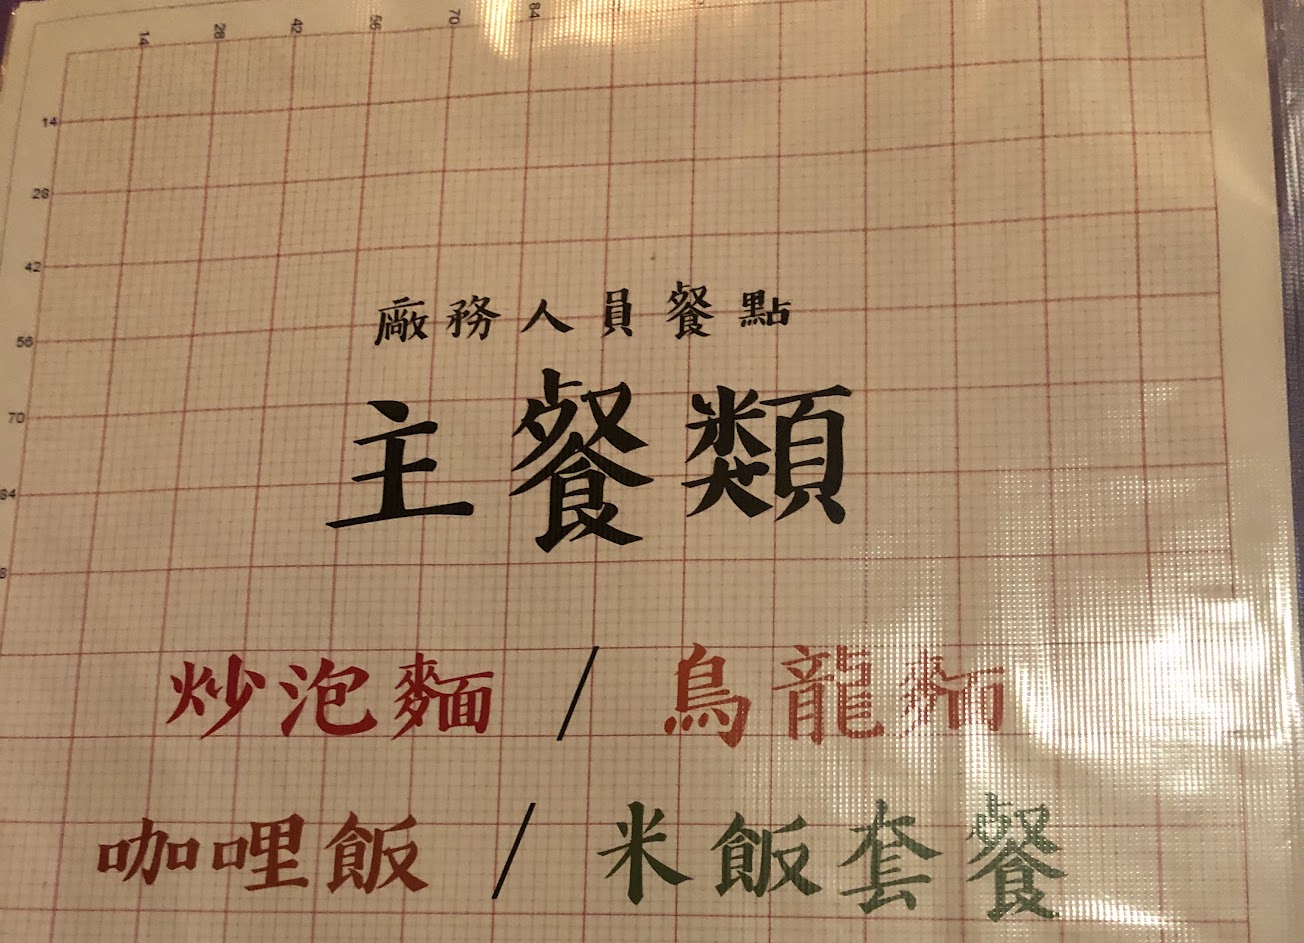 14 28 42 56 70 84
14
28
42
56
70
84
廠務人員餐點
主餐類
炒泡麵 / 烏龍麵
咖哩飯 / 米飯套餐